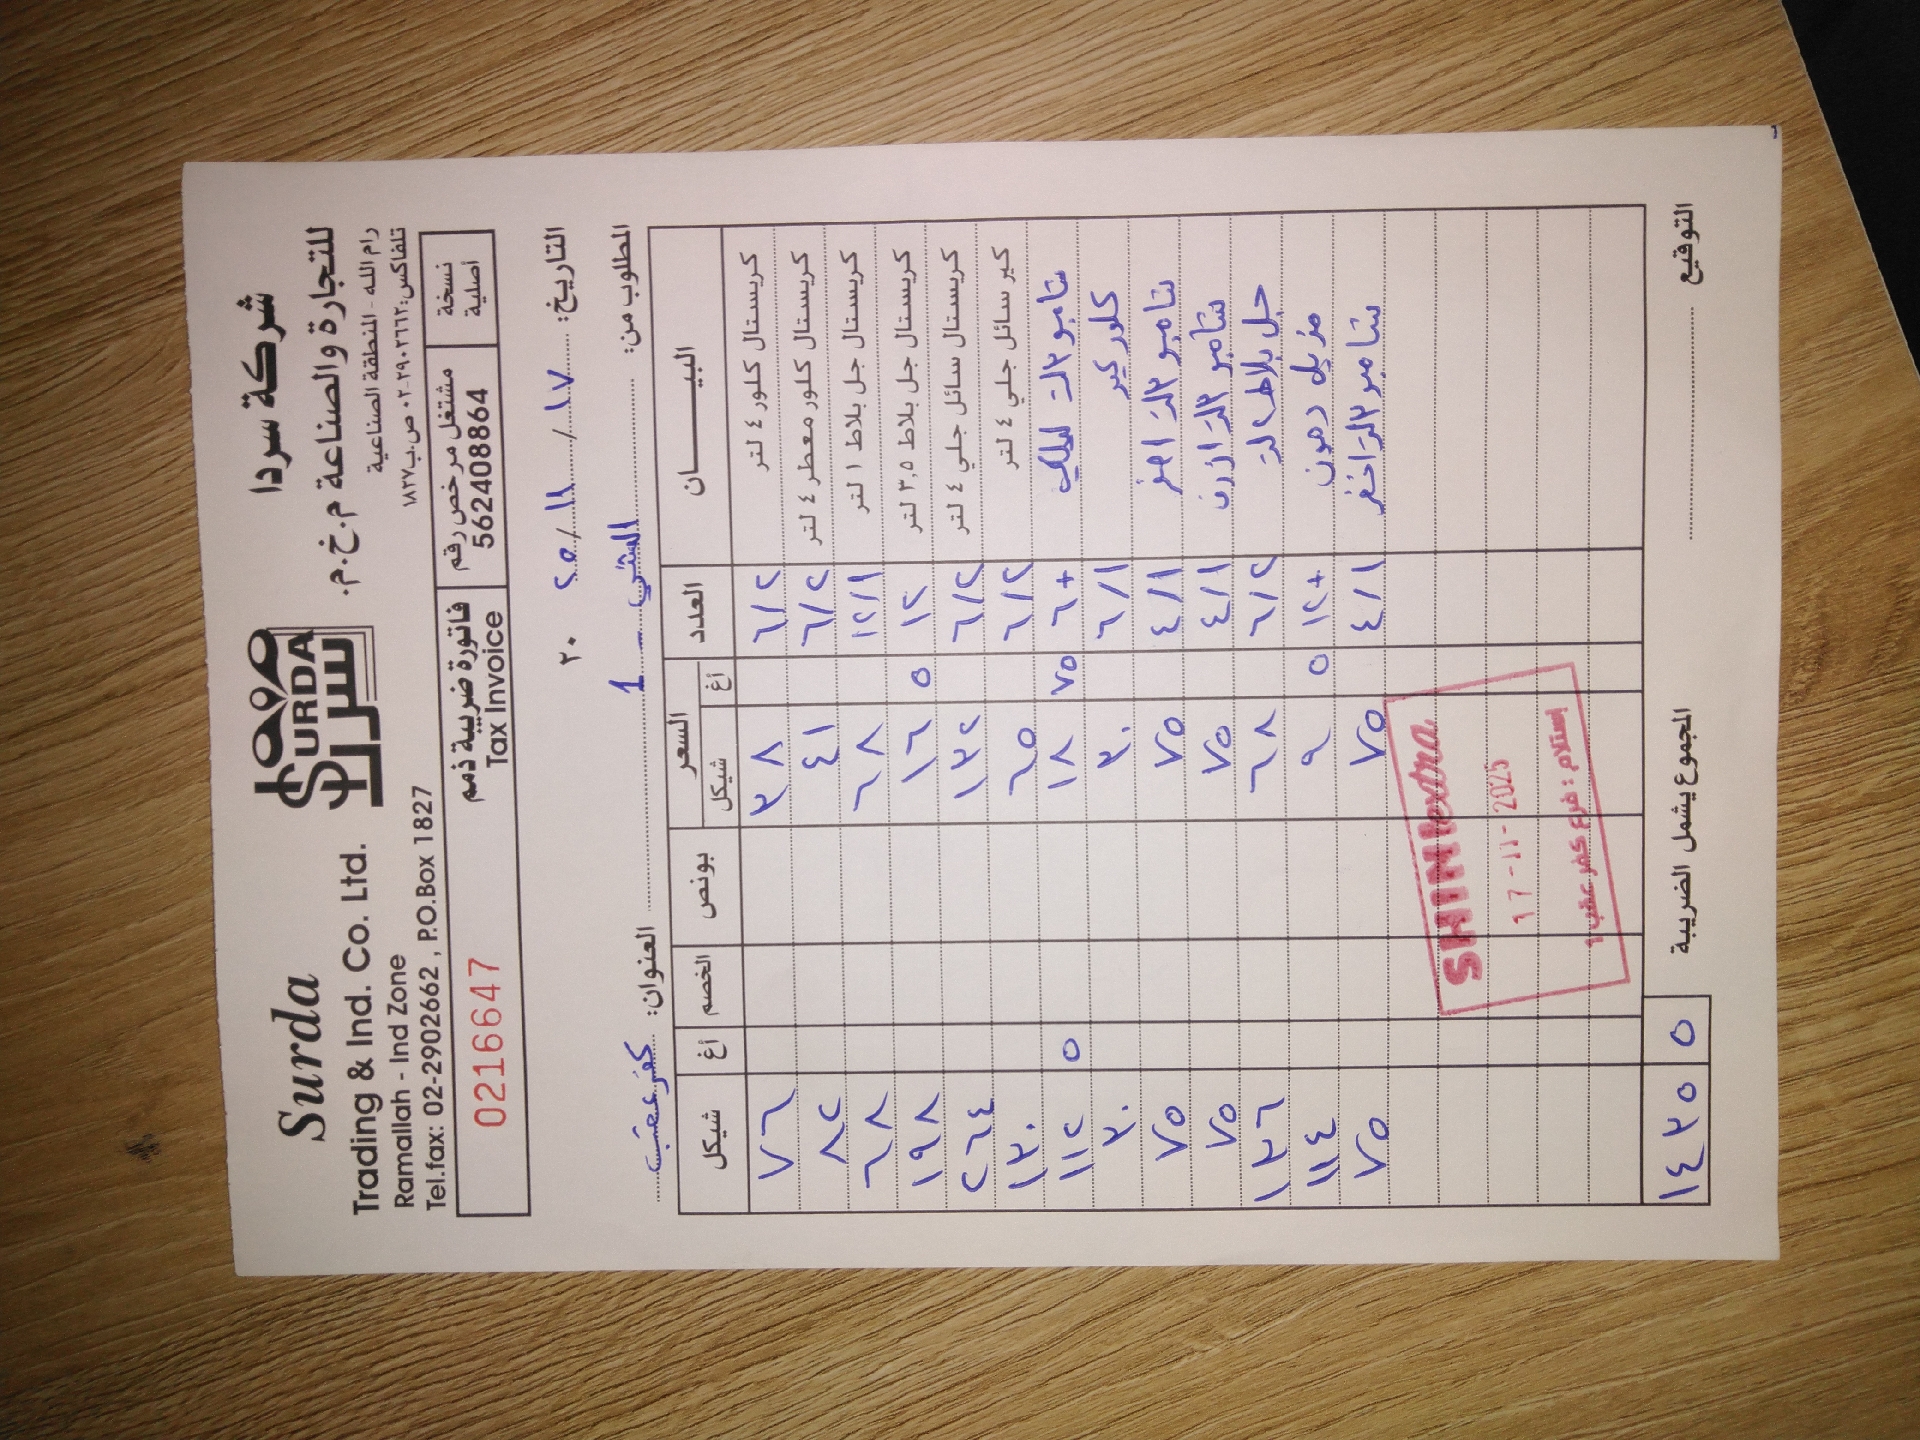 Surda
Trading & Ind. Co. Ltd.
Ramallah - Ind Zone
Tel.fax: 02-2902662 , P.O.Box 1827
SURDA
سردا
شركة سردا
للتجارة والصناعة م.خ.م.
رام الله - المنطقة الصناعية
تلفاكس: ٢٩٠٢٦٦٢-٠٢ ص.ب ١٨٢٧
0216647
فاتورة ضريبية ذمم
Tax Invoice
مشتغل مرخص رقم
562408864
نسخة
أصلية
التاريخ: ١٧ / ١١ / ٢٥ ٢٠
المطلوب من: 1 العنوان: كفر عقب
البيـــــان العدد السعر بونص الخصم أغ شيكل
شيكل أغ
كريستال كلور ٤ لتر ٦/٢ ٣٨ ٧٦
كريستال كلور معطر ٤ لتر ٦/٢ ٤١ ٨٢
كريستال جل بلاط ١ لتر ١٢/١ ٦٨ ٦٨
كريستال جل بلاط ٣,٥ لتر ١٢ ١٦ ٥ ١٩٨
كريستال سائل جلي ٤ لتر ٦/٢ ١٣٢ ٢٦٤
كير سائل جلي ٤ لتر ٦/٢ ٦٥ ١٣٠
شامبو ٣ لتر +٦ ١٨ ٧٥ ١١٢ ٥
كلور كير ٦/١ ٣٠ ٣٠
شامبو ٣ لتر اصفر ٤/١ ٧٥ ٧٥
شامبو ٣ لتر ازرق ٤/١ ٧٥ ٧٥
جل بلاط ٤ لتر ٦/٢ ٦٨ ١٣٦
مزيل دهون +١٢ ٩ ٥ ١١٤
شامبو ٣ لتر اخضر ٤/١ ٧٥ ٧٥
SHINI extra
17-11-2025
إستلام : فرع كفر عقب 1
التوقيع المجموع يشمل الضريبة ٥ ١٤٣٥